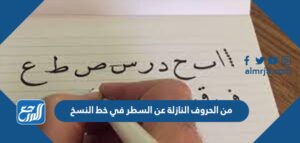 ااا ب ح د ر س ص ط ع
ف ق
almrj3.com
المرجع
من الحروف النازلة عن السطر في خط النسخ